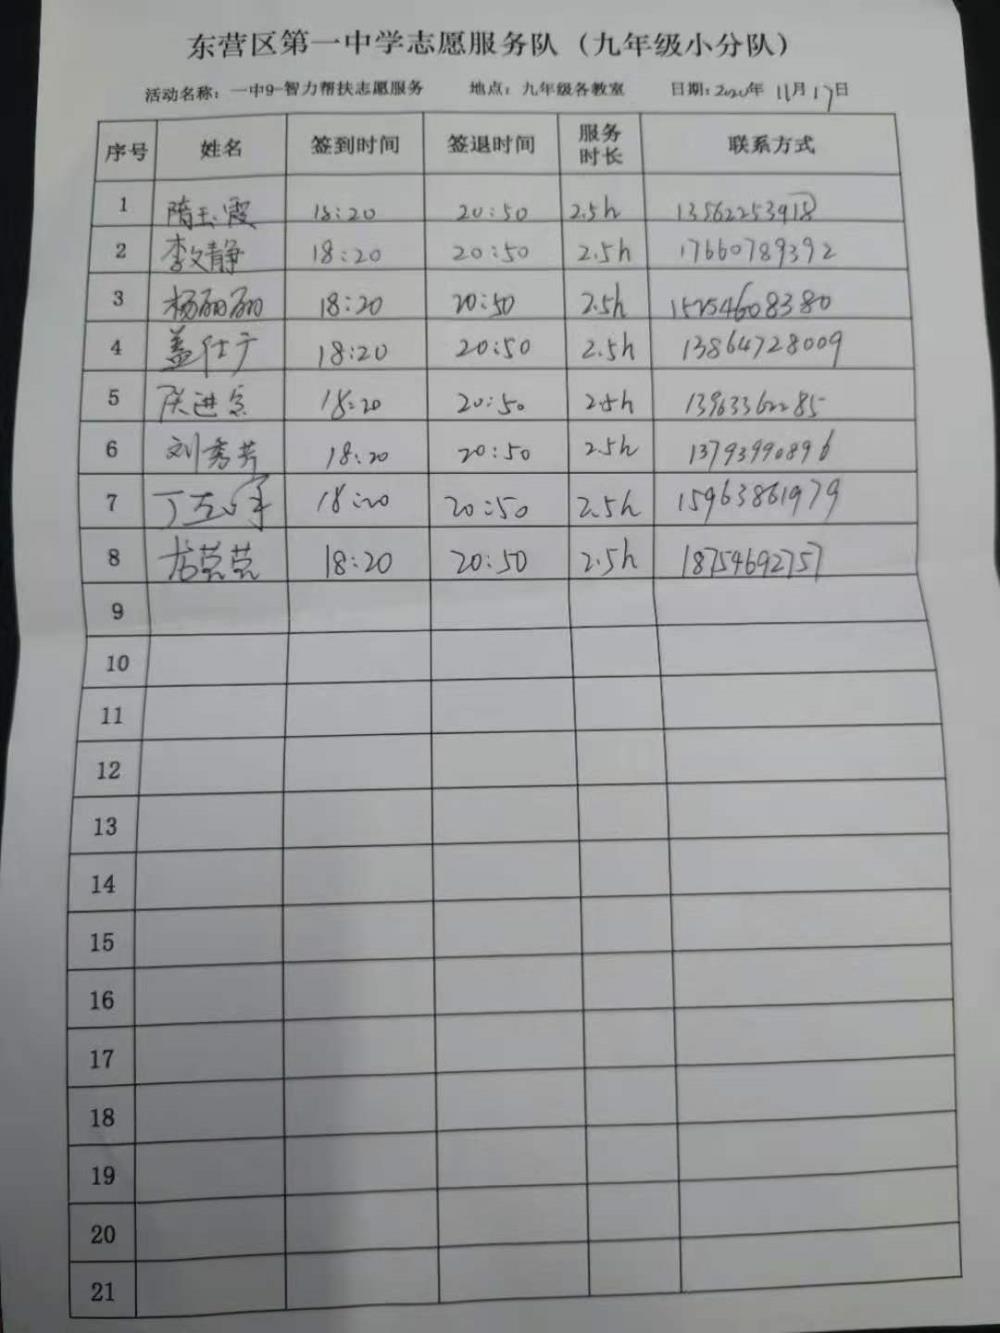 东营区第一中学志愿服务队（九年级小分队）
活动名称：一中9-智力帮扶志愿服务 地点：九年级各教室 日期：2020年 11月17日
序号 姓名 签到时间 签退时间 服务时长 联系方式
1 隋玉霞 18:20 20:50 2.5h 13562253918
2 李文静 18:20 20:50 2.5h 17660789392
3 杨丽丽 18:20 20:50 2.5h 15254608380
4 盖仕广 18:20 20:50 2.5h 13864728009
5 进 18:20 20:50 2.5h 13963362285
6 刘秀芳 18:20 20:50 2.5h 13793990896
7 丁 18:20 20:50 2.5h 15963861979
8 18:20 20:50 2.5h 18754692757
9
10
11
12
13
14
15
16
17
18
19
20
21